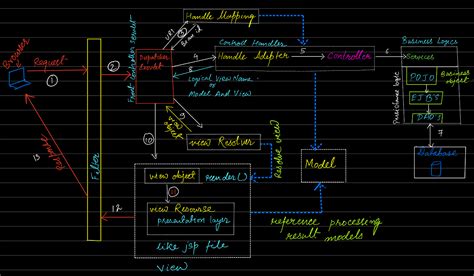 Handle Mapping
URI
Bean id
Front Controller Servlet
Dispatcher
Servlet
Browser
Request
1
2
Filter
3
4
Control Handler
Handle Adapter
5
Controller
6
Business Logics
Services
8
Logical View Name
or
Model And View
POJO
EJBs
Business
object
7
Database
9
view
object
10
view Resolver
Resolve view
Model
view object
render()
11
view Resourse
presentation layer
like jsp file
view
12
13
Response
reference processing
result models